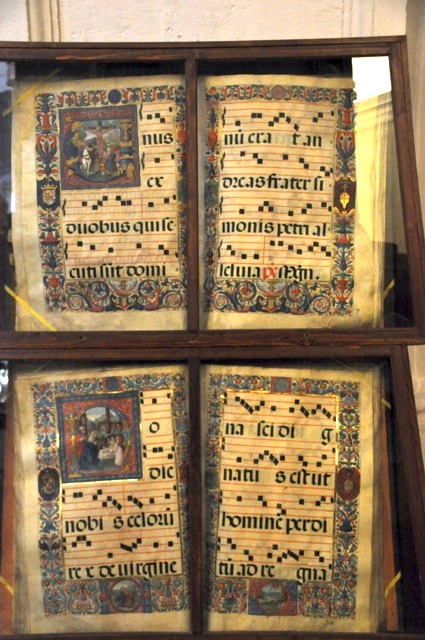 nus
ex
duobus qui se
cuti sūt domi
nū erat an
dreas frater si
monis petri al
leluia
o
die
nobi s celorū
rex de uirgine
na sci di g
natu s est ut
hominē perdi
tū ad re gna